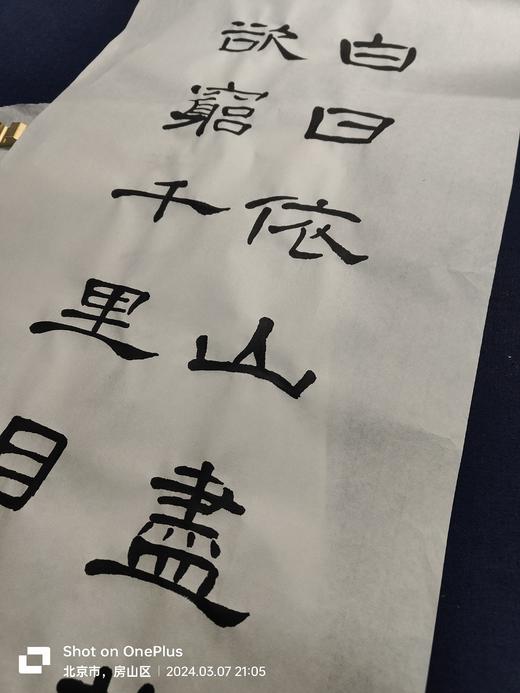 白日依山盡
欲窮千里目
Shot on OnePlus
北京市，房山区 | 2024.03.07 21:05